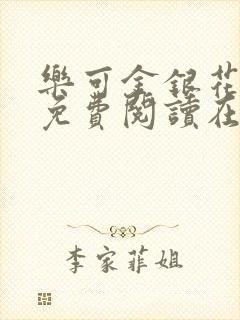 樂可金銀花
免費閱讀在
李家菲姐